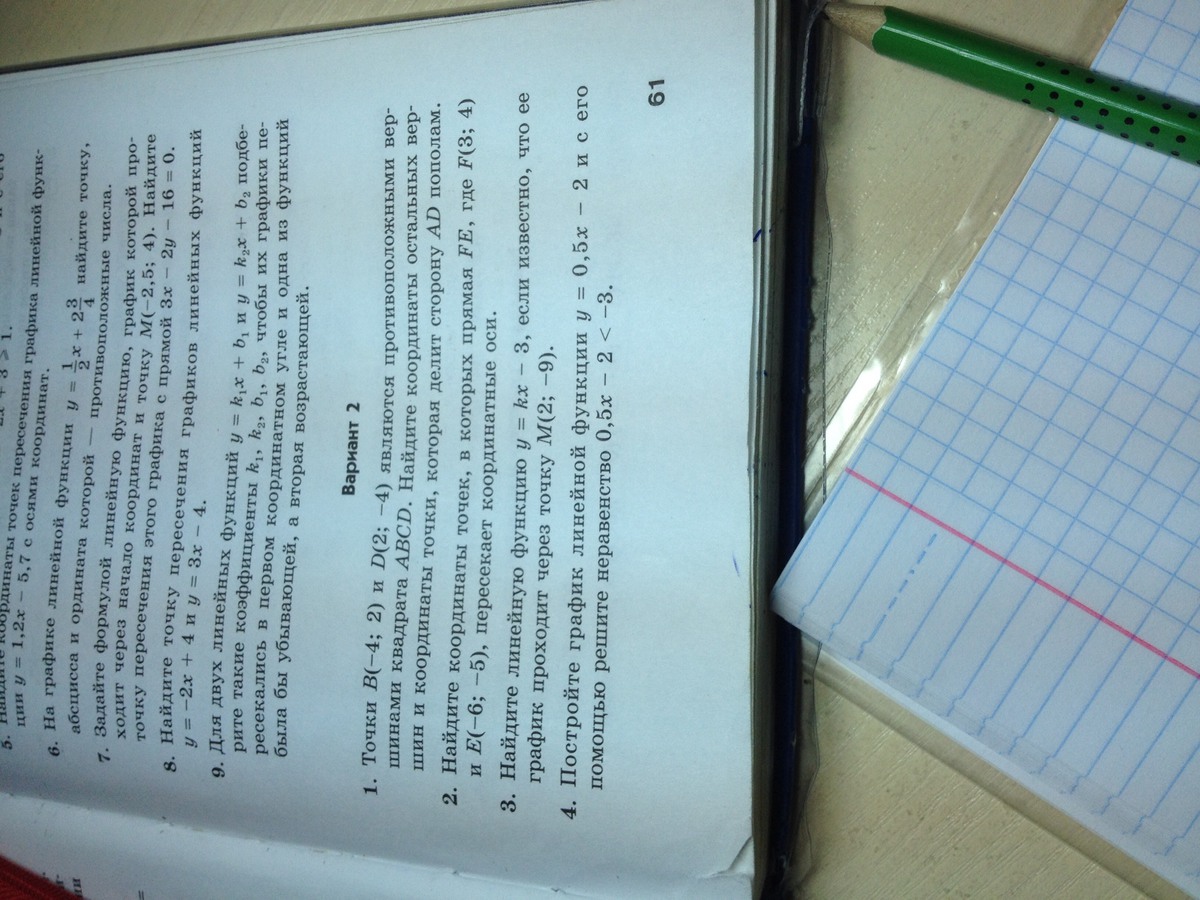 2x + 3 ⩾ 1.
5. Найдите координаты точек пересечения графика линейной функ-
ции y = 1,2x − 5,7 с осями координат.
6. На графике линейной функции y = 1/2 x + 2 3/4 найдите точку,
абсцисса и ордината которой — противоположные числа.
7. Задайте формулой линейную функцию, график которой про-
ходит через начало координат и точку M(−2,5; 4). Найдите
точку пересечения этого графика с прямой 3x − 2y − 16 = 0.
8. Найдите точку пересечения графиков линейных функций
y = −2x + 4 и y = 3x − 4.
9. Для двух линейных функций y = k₁x + b₁ и y = k₂x + b₂ подбе-
рите такие коэффициенты k₁, k₂, b₁, b₂, чтобы их графики пе-
ресекались в первом координатном угле и одна из функций
была бы убывающей, а вторая возрастающей.
Вариант 2
1. Точки B(−4; 2) и D(2; −4) являются противоположными вер-
шинами квадрата ABCD. Найдите координаты остальных вер-
шин и координаты точки, которая делит сторону AD пополам.
2. Найдите координаты точек, в которых прямая FE, где F(3; 4)
и E(−6; −5), пересекает координатные оси.
3. Найдите линейную функцию y = kx − 3, если известно, что ее
график проходит через точку M(2; −9).
4. Постройте график линейной функции y = 0,5x − 2 и с его
помощью решите неравенство 0,5x − 2 < −3.
61